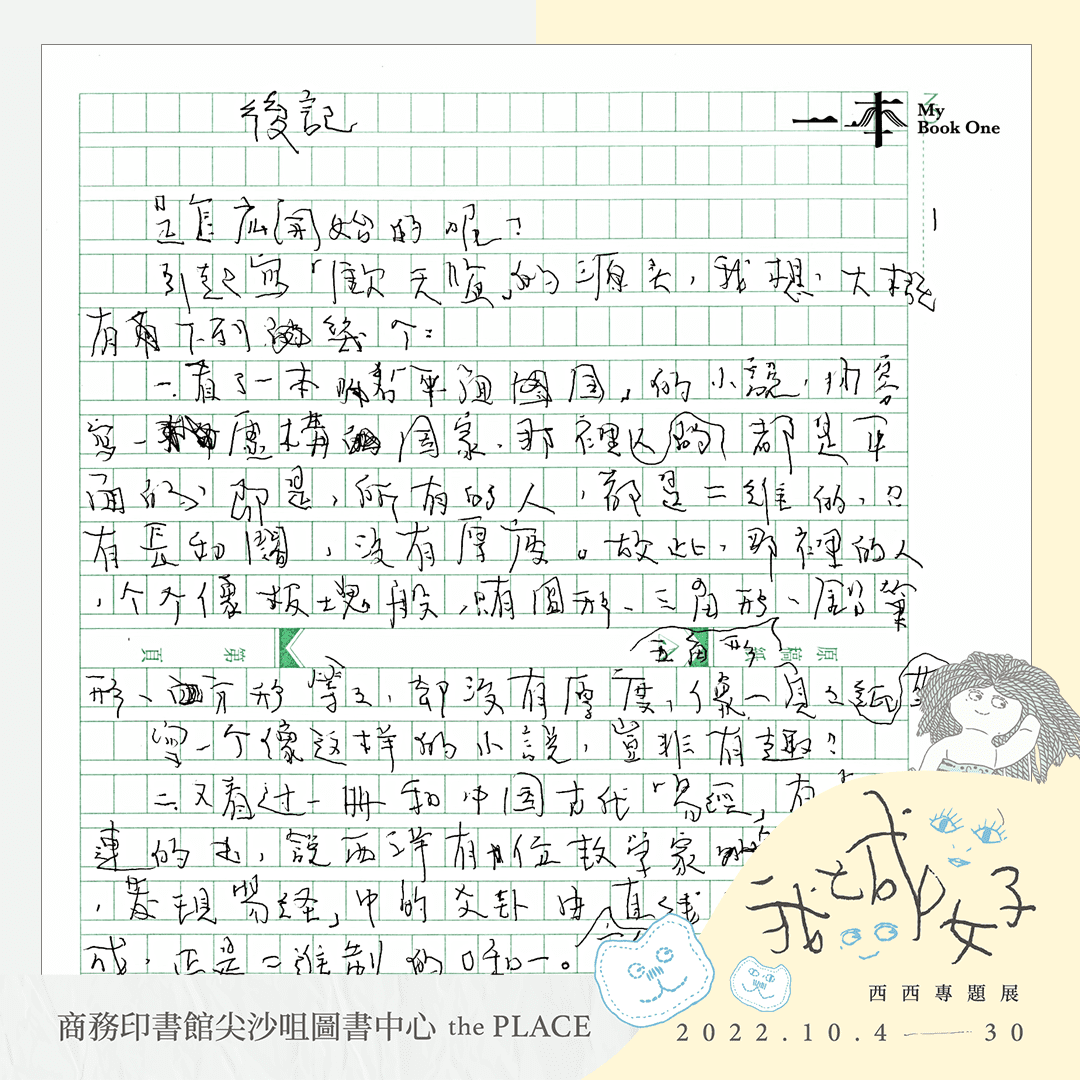 一本
My
Book One
後記
是怎麽開始的呢？
引起寫「欽天監」的源頭，我想，大概
有下列幾个：
一.看了一本 平面國 的小說，描
寫一 虛構 国家，那裡 的 都是平
面的，即是，所有的人，都是二維的，只
有長和闊，沒有厚度。故此，那裡的人
，个个像板塊般，只有圓形、三角形、
五角形
形、 形等等，都沒有厚度，像一頁頁紙
寫一个像这样的小說，豈非有趣？
二.又看过一冊和中国古代「易經」有
連的書，說西洋有位数学家
，發現「易経」中的爻卦由直线
成，正是二進制的 0 和一。
第 頁
原稿紙
我城女子
西西專題展
2022.10.4——30
商務印書館尖沙咀圖書中心 the PLACE